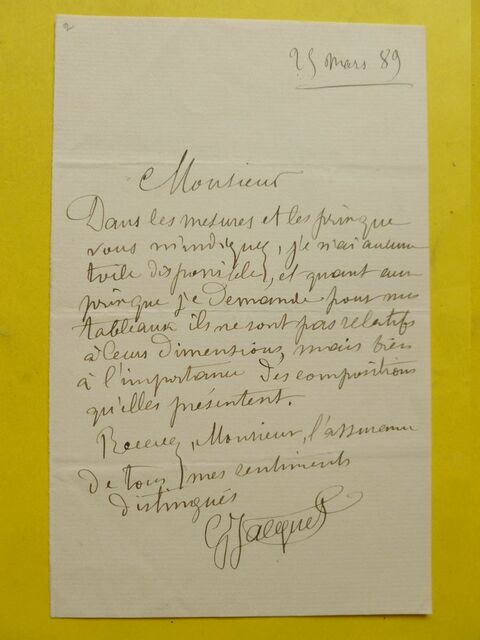 2
25 mars 89
Monsieur
Dans les mesures et les prix que
vous m'indiquez, je n'ai aucune
toile disponible, et quant aux
prix que je Demande pour mes
tableaux ils ne sont pas relatifs
à leurs dimensions, mais bien
à l'importance Des compositions
qu'elles présentent.
Recevez, Monsieur, l'assurance
de tous mes sentiments
distingués
G Jacquet